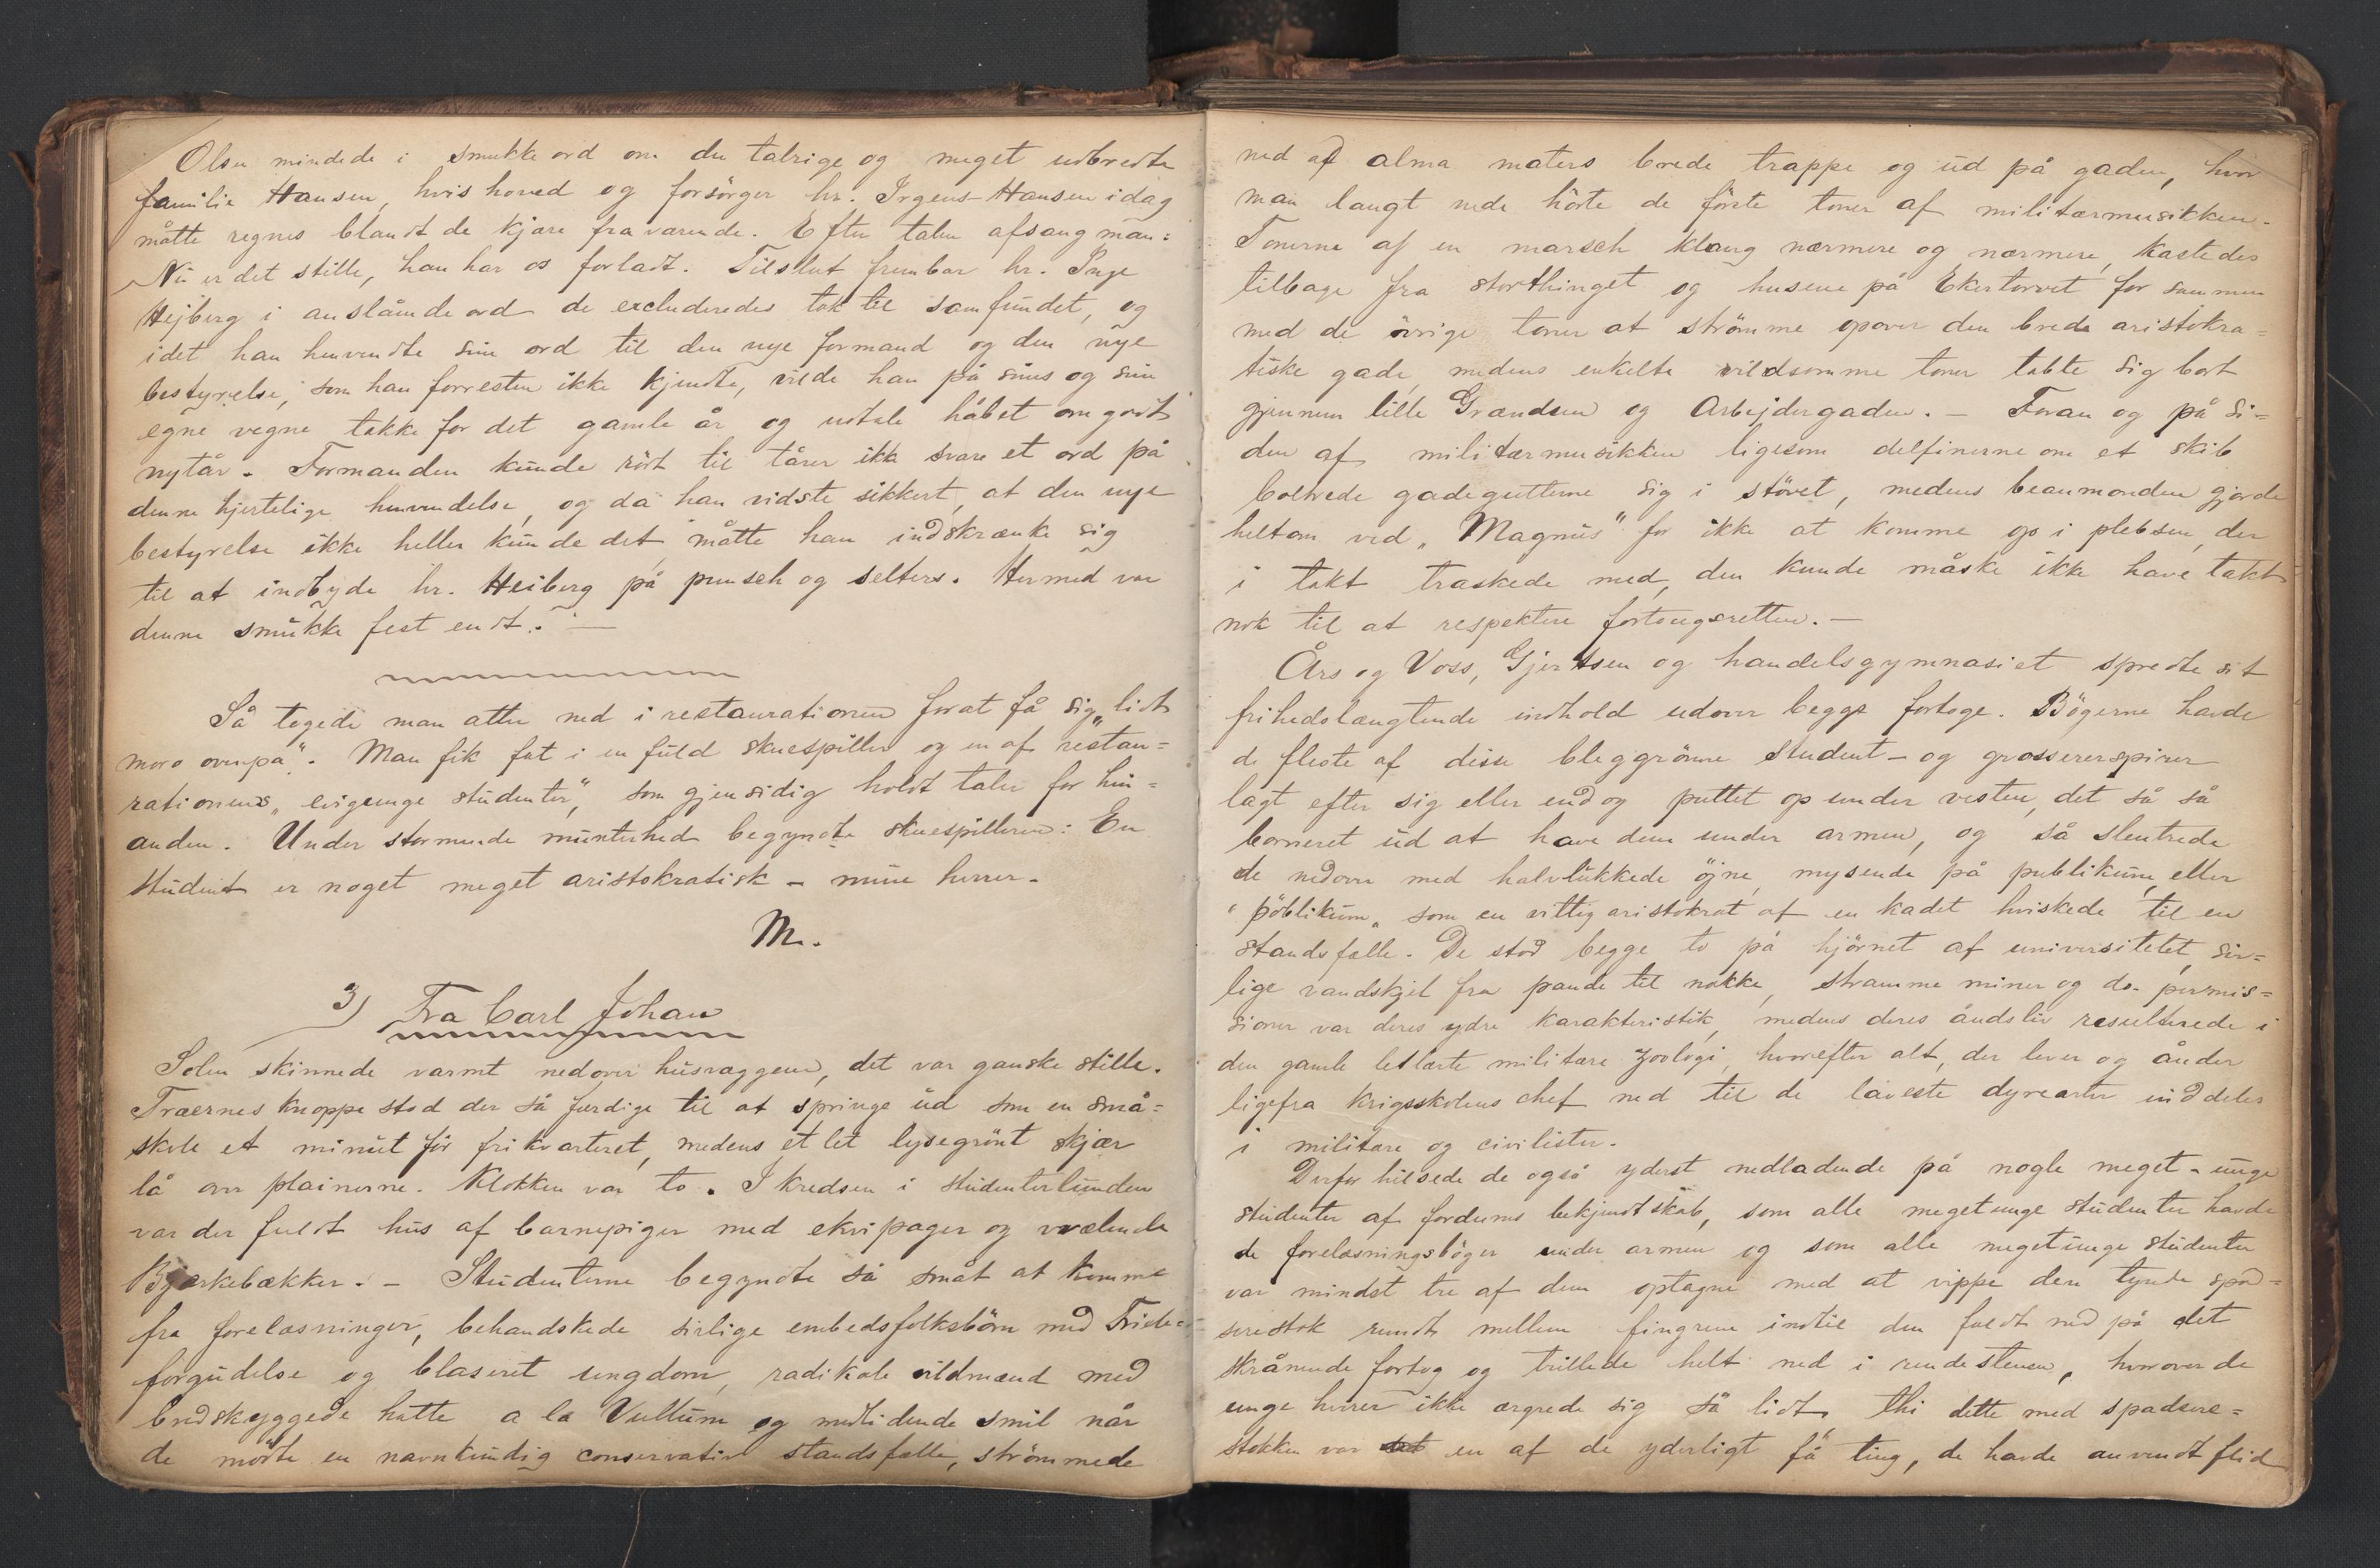 Olsen mindede i smukke ord om den talrige og meget udbredte
familie Hansen, hvis hoved og forsörger hr. Irgens-Hansen idag
måtte regnes blandt de kjære fraværende. Efter talen afsang man:
Nu er det stille, han har os forladt. Tilslut frembar hr. Inge
Hejberg i anslående ord de excluderedes tak til samfundet, og
idet han henvendte sine ord til den nye formand og den nye
bestyrelse, som han forresten ikke kjendte, vilde han på sines og sine
egne vegne takke for det gamle år og udtale håbet om godt
nytår. Formanden kunde rört til tårer ikke svare et ord på
denne hjertelige henvendelse, og da han vidste sikkert, at den nye
bestyrelse ikke heller kunde det, måtte han indskrænke sig
til at indbyde hr. Heiberg på punsch og selters. Hermed var
denne smukke fest endt. —
Så togede man atter ned i restaurationen forat få sig „lidt
moro ovenpå". Man fik fat i en fuld skuespiller og en af restau=
rationens „evigunge studenter", som gjensidig holdt taler for hin=
anden. Under stormende munterhed begyndte skuespilleren: En
student er noget meget aristokratisk – mine herrer.
M.
3) Fra Carl Johan
Solen skinnede varmt nedover husvæggene, det var ganske stille.
Træernes knoppe stod der så færdige til at springe ud som en små=
skole et minut för frikvarteret, medens et let lysegrönt skjær
lå over plainerne. Klokken var to. I kredsen i studenterlunden
var der fuldt hus af barnepiger med ekvipager og vrælende
Bjerkebækker. – Studenterne begyndte så småt at komme
fra forelæsninger, behandskede sirlige embedsfolksbörn med Friele=
forgudelse og blaseret ungdom, radikale vildmænd med
bredskyggede hatte a la Vullum og medlidende smil når
de mödte en navnkundig conservativ standsfælle, strömmede
ned af alma maters brede trappe og ud på gaden, hvor
man langt nede hörte de förste toner af militærmusikken.
Tonerne af en marsch klang nærmere og nærmere, kastedes
tilbage fra storthinget og husene på Ekertorvet for sammen
med de övrige toner at strömme opover den brede aristokra=
tiske gade, medens enkelte vildsomme toner tabte sig bort
gjennem lille Grændsen og Arbejdergaden. – Foran og på si=
den af militærmusikken ligesom delfinerne om et skib
boltrede gadegutterne sig i stövet, medens beaumonden gjorde
heltom ved „Magnus" for ikke at komme op i plebsen, der
i takt traskede med, den kunde måske ikke have takt
nok til at respektere fortougsretten. –
Års og Voss, Gjertsen og handelsgymnasiet spredte sit
frihedslængtende indhold udover begge fortoge. Bögerne havde
de fleste af disse bleggrönne student- og grossererspirer
lagt efter sig eller endog puttet op under vesten, det så så
borneret ud at have dem under armen, og så slentrede
de nedover med halvlukkede öjne, mysende på publikum, eller
„pöblikum" som en vittig aristokrat af en kadet hviskede til en
standsfælle. De stod begge to på hjörnet af universitetet, sir=
lige vandskjel fra pande til nakke, stramme miner og do. permis=
sioner var deres ydre karakteristik, medens deres åndsliv resulterede i
den gamle letlærte militære zoologi, hvorefter alt, der lever og ånder
ligefra krigsskolens chef ned til de laveste dyrearter inddeles
i militære og civilister.
Derfor hilsede de også yderst nedladende på nogle meget-unge
studenter af fordums bekjendtskab, som alle megetunge studenter havde
de forelæsningsböger under armen og som alle megetunge studenter
var mindst tre af dem optagne med at vippe den tynde spad=
serestok rundt mellem fingrene indtil den faldt ned på det
skrånende fortog og trillede helt ned i rendestenen, hvorover de
unge herrer ikke ærgrede sig så lidt, thi dette med spadsere=
stokken var en af de yderligt få ting, de havde anvendt flid